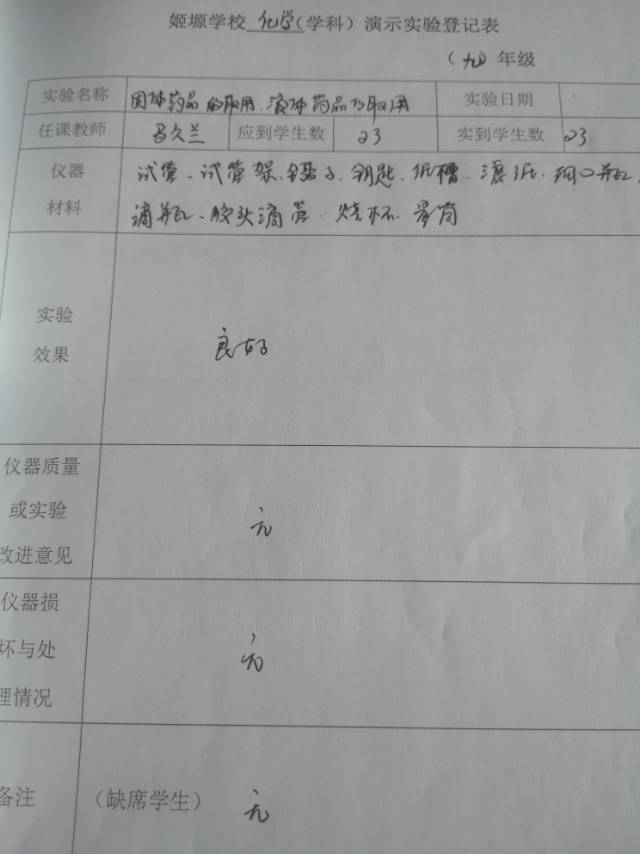 姬塬学校 化学(学科）演示实验登记表
（九）年级
实验名称 固体药品的取用、液体药品的取用 实验日期
任课教师 马久兰 应到学生数 23 实到学生数 23
仪器 试管、试管架、镊子、钥匙、纸槽、滤纸、细口瓶、
材料 滴瓶、胶头滴管、烧杯、量筒
实验
效果 良好
仪器质量
或实验 无
改进意见
仪器损
坏与处 无
理情况
备注 （缺席学生） 无